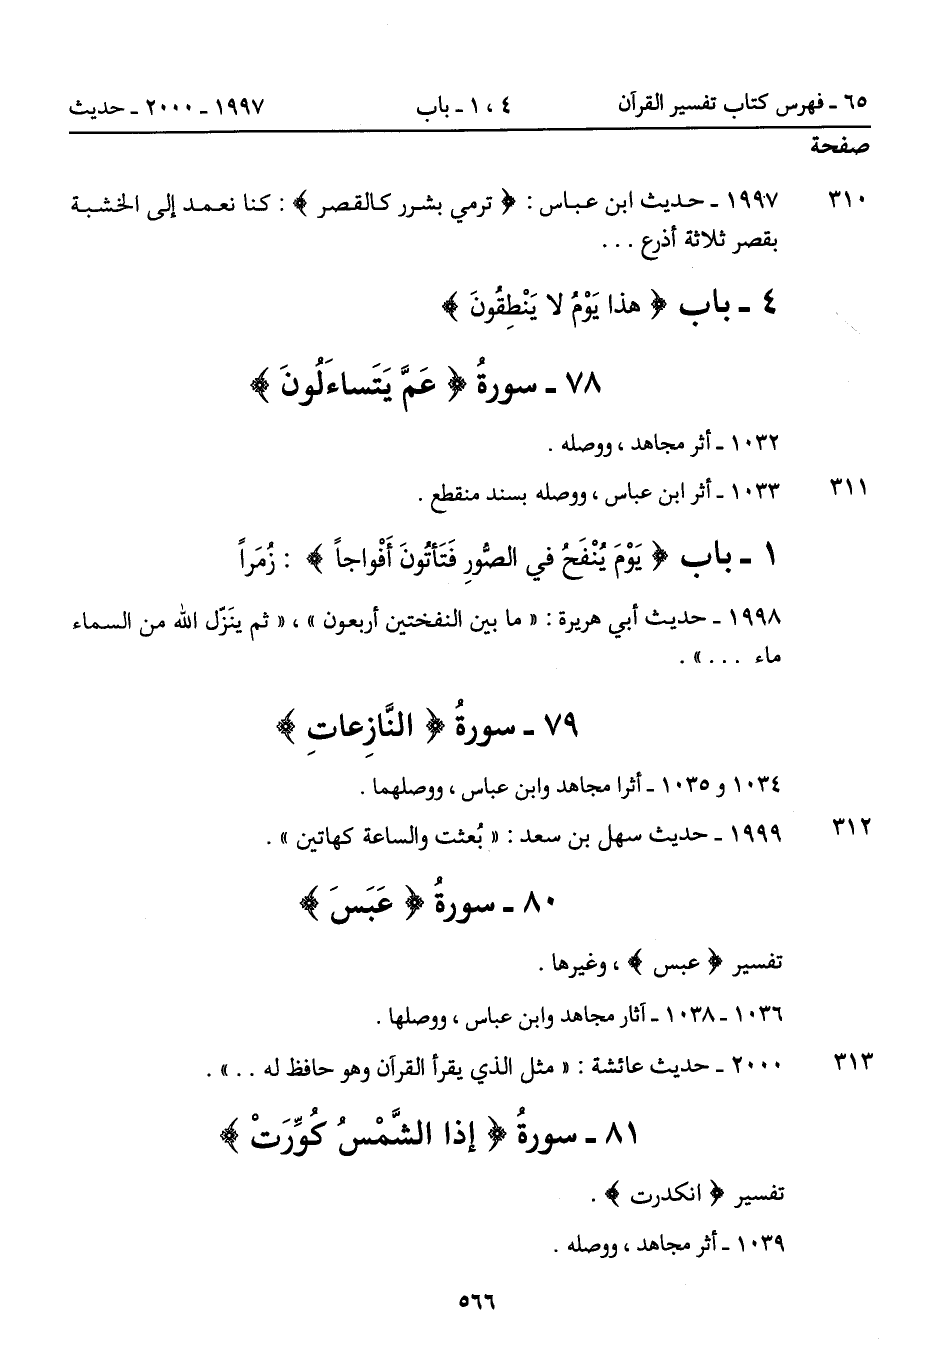 ٦٥ - فهرس كتاب تفسير القرآن ٤ ، ١ - باب ١٩٩٧ - ٢٠٠٠ - حديث
صفحة
٣١٠ ١٩٩٧ - حديث ابن عباس : ﴿ ترمي بشرر كالقصر ﴾ : كنا نعمد إلى الخشبة
بقصر ثلاثة أذرع ...
٤ - باب ﴿ هذا يَوْمُ لا يَنْطِقُونَ ﴾
٧٨ - سورةُ ﴿ عَمَّ يَتَساءَلُونَ ﴾
١٠٣٢ - أثر مجاهد ، ووصله .
٣١١ ١٠٣٣ - أثر ابن عباس ، ووصله بسند منقطع .
١ - باب ﴿ يَوْمَ يُنْفَخُ في الصُّورِ فَتَأتُونَ أَفْواجاً ﴾ : زُمَراً
١٩٩٨ - حديث أبي هريرة : « ما بين النفختين أربعون » ، « ثم ينَزّل الله من السماء
ماء ... » .
٧٩ - سورةُ ﴿ النَّازِعاتِ ﴾
١٠٣٤ و ١٠٣٥ - أثرا مجاهد وابن عباس ، ووصلهما .
٣١٢ ١٩٩٩ - حديث سهل بن سعد : « بُعثت والساعة كهاتين » .
٨٠ - سورةُ ﴿ عَبَسَ ﴾
تفسير ﴿ عبس ﴾ ، وغيرها .
١٠٣٦ - ١٠٣٨ - آثار مجاهد وابن عباس ، ووصلها .
٣١٣ ٢٠٠٠ - حديث عائشة : « مثل الذي يقرأ القرآن وهو حافظ له .. » .
٨١ - سورةُ ﴿ إذا الشَّمْسُ كُوِّرَتْ ﴾
تفسير ﴿ انكدرت ﴾ .
١٠٣٩ - أثر مجاهد ، ووصله .
٥٦٦